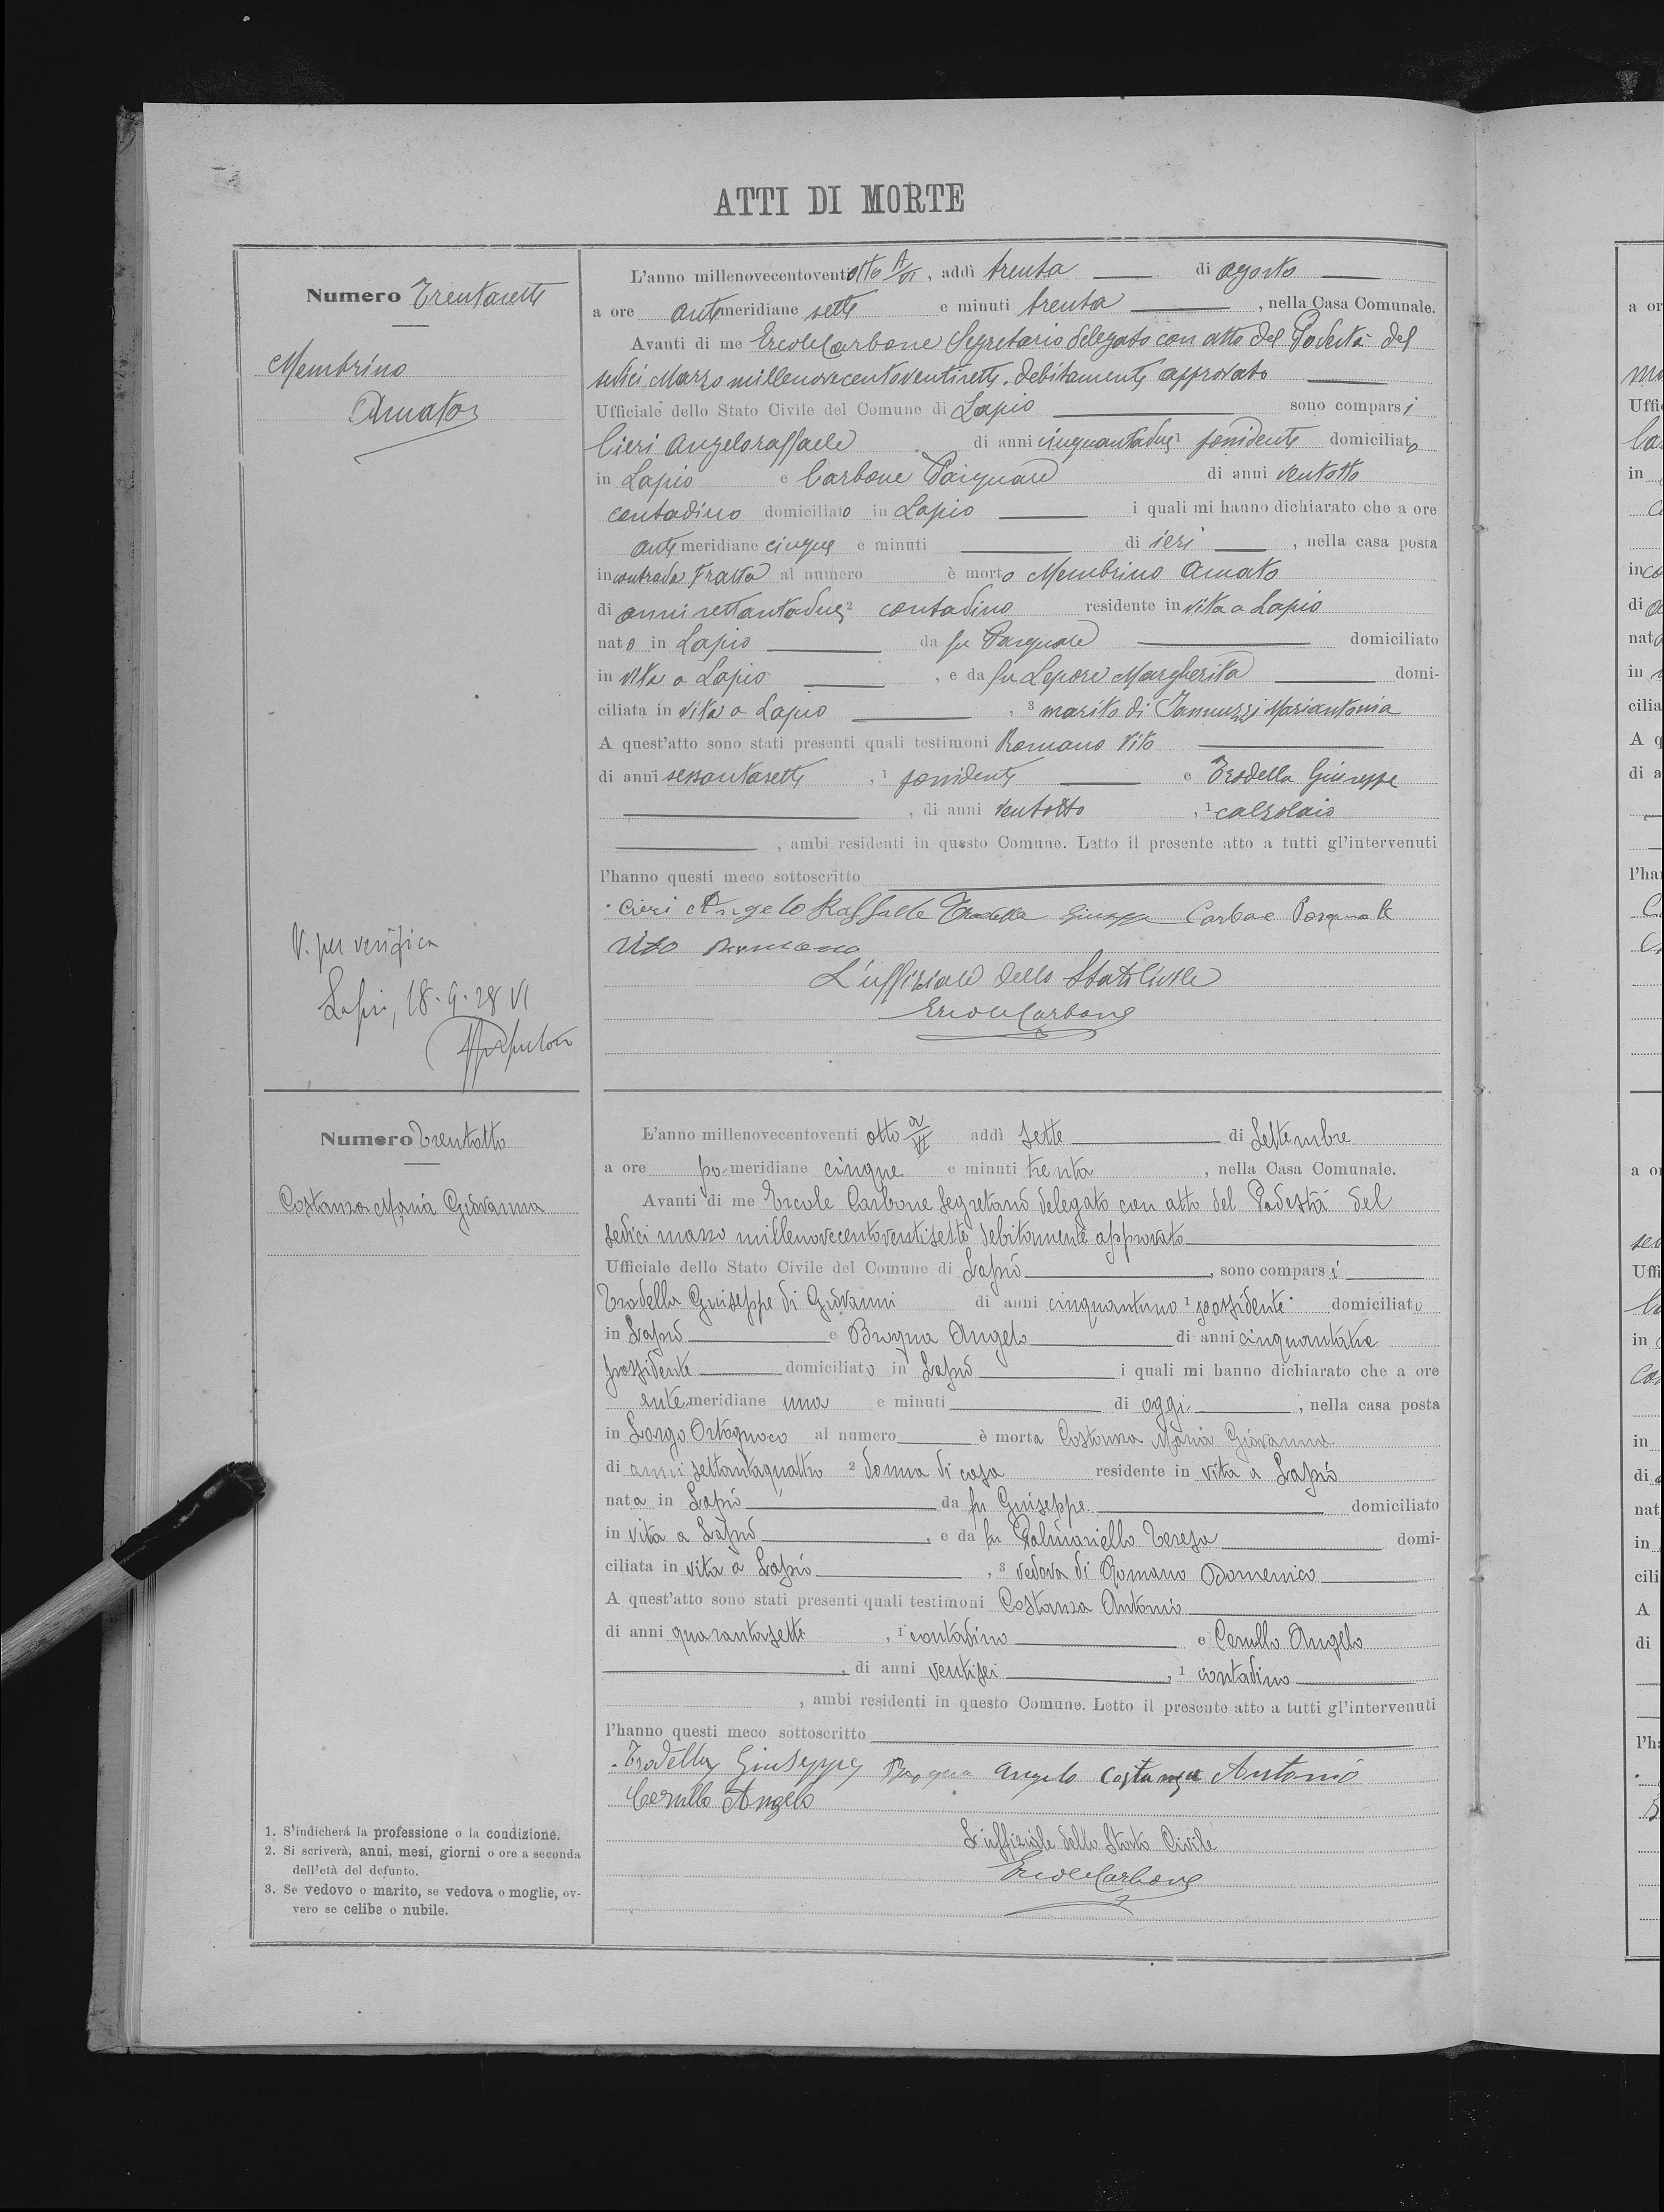 ATTI DI MORTE
Numero Trentasette
Membrino
Amato
V. per verifica
Lapio, 18.9.28 VI
L'anno millenovecentoventiotto A/VI, addì trenta di agosto
a ore antimeridiane sette e minuti trenta, nella Casa Comunale.
Avanti di me Ercole Carbone Segretario delegato con atto del Podestà del
sedici Marzo millenovecentoventisette, debitamente approvato
Ufficiale dello Stato Civile del Comune di Lapio sono comparsi
Cieri Angeloraffaele di anni cinquantadue 1 possidente domiciliato
in Lapio e Carbone Pasquale di anni ventotto
contadino domiciliato in Lapio i quali mi hanno dichiarato che a ore
antimeridiane cinque e minuti di ieri, nella casa posta
in contrada Tratta al numero è morto Membrino Amato
di anni settantadue 2 contadino residente in vita a Lapio
nato in Lapio da fu Pasquale domiciliato
in vita a Lapio, e da fu Lepore Margherita domi-
ciliata in vita a Lapio, 3 marito di Iannuzzi Mariantonia
A quest'atto sono stati presenti quali testimoni Romano Vito
di anni sessantasette, 1 possidente e Trodella Giuseppe
, di anni ventotto, 1 calzolaio
, ambi residenti in questo Comune. Letto il presente atto a tutti gl'intervenuti
l'hanno questi meco sottoscritto
Cieri Angelo Raffaele Trodella Giuseppe Carbone Pasquale
Vito Romano
L'uffiziale dello Stato Civile
Ercole Carbone
Numero Trentotto
Costanza Maria Giovanna
L'anno millenovecentoventi otto A/VI addì sette di Settembre
a ore pomeridiane cinque e minuti trenta, nella Casa Comunale.
Avanti di me Ercole Carbone Segretario delegato con atto del Podestà del
sedici marzo millenovecentoventisette debitamente approvato
Ufficiale dello Stato Civile del Comune di Lapio, sono comparsi
Trodella Giuseppe di Giovanni di anni cinquantuno 1 possidente domiciliato
in Lapio e Brogna Angelo di anni cinquantatre
possidente domiciliato in Lapio i quali mi hanno dichiarato che a ore
antemeridiane una e minuti di oggi, nella casa posta
in Largo al numero è morta Costanza Maria Giovanna
di anni settantaquattro 2 donna di casa residente in vita a Lapio
nata in Lapio da fu Giuseppe domiciliato
in vita a Lapio, e da fu Palmariello Teresa domi-
ciliata in vita a Lapio, 3 vedova di Romano Domenico
A quest'atto sono stati presenti quali testimoni Costanza Antonio
di anni quarantasette, 1 contadino e Cerullo Angelo
, di anni ventisei, 1 contadino
, ambi residenti in questo Comune. Letto il presente atto a tutti gl'intervenuti
l'hanno questi meco sottoscritto
Trodella Giuseppe Brogna Angelo Costanza Antonio
Cerullo Angelo
L'uffiziale dello Stato Civile
Ercole Carbone
1. S'indicherà la professione o la condizione.
2. Si scriverà, anni, mesi, giorni o ore a seconda
dell'età del defunto.
3. Se vedovo o marito, se vedova o moglie, ov-
vero se celibe o nubile.